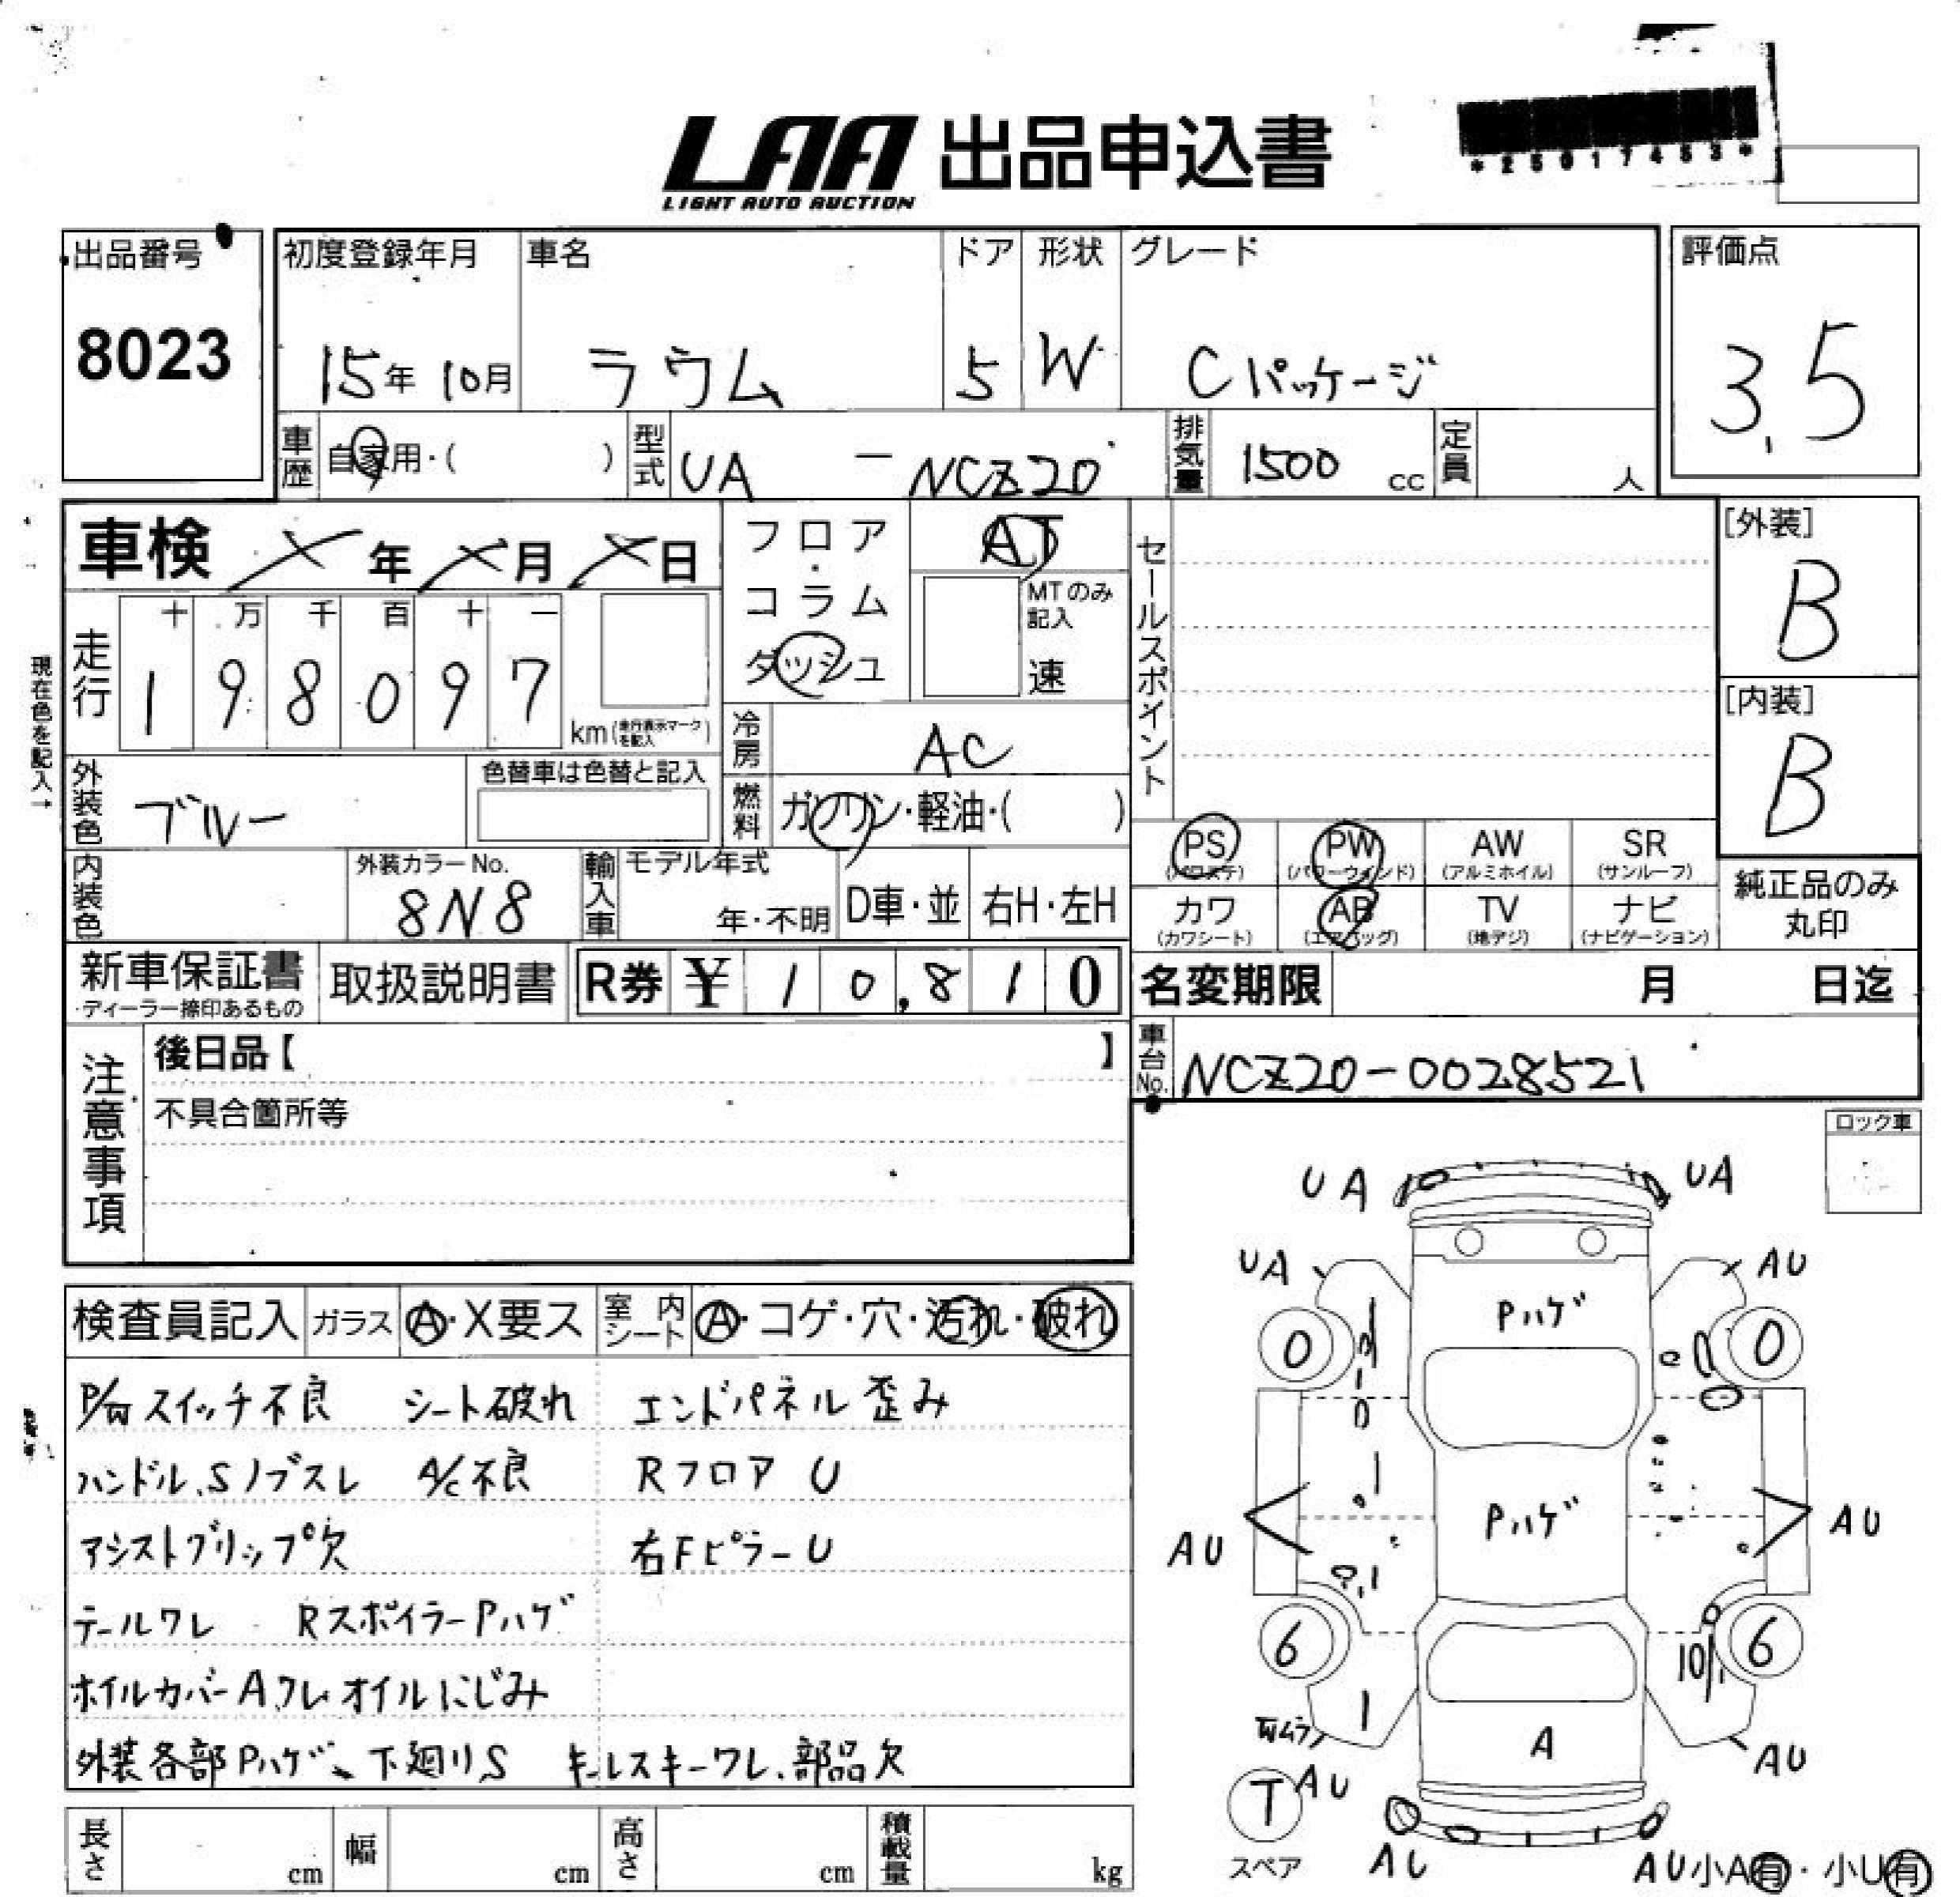 LAA 出品申込書
LIGHT AUTO AUCTION
*25017453*
出品番号
8023
初度登録年月 車名 ドア 形状 グレード
15年 10月 ラウム 5 W Cパッケージ
評価点
3.5
車歴 自家用・( ) 型式 UA - NCZ20 排気量 1500 cc 定員 人
車検 × 年 × 月 × 日
フロア・コラム
ダッシュ
AT
MTのみ記入
速
セールスポイント
[外装]
B
現在色を記入→
走行 十 万 千 百 十 一
1 9 8 0 9 7
km (走行表示マークを記入)
冷房 AC
[内装]
B
外装色 ブルー 色替車は色替と記入
燃料 ガソリン・軽油・( )
PS (パワステ) PW (パワーウィンド) AW (アルミホイル) SR (サンルーフ)
カワ (カワシート) AB (エアバッグ) TV (地デジ) ナビ (ナビゲーション)
純正品のみ
丸印
内装色 外装カラーNo.
8N8
輸入車 モデル年式
年・不明 D車・並 右H・左H
新車保証書
・ディーラー捺印あるもの
取扱説明書 R券 ¥ 1 0,8 1 0
名変期限 月 日迄
車台No. NCZ20-0028521
注意事項
後日品【 】
不具合箇所等
ロック車
検査員記入 ガラス A・X要ス 室内シート A・コゲ・穴・汚れ・破れ
P/W スイッチ不良 シート破れ エンドパネル 歪み
ハンドル、Sノブスレ A/C不良 Rフロア U
アシストグリップ欠 右Fピラー U
テールワレ RスポイラーPハゲ
ホイルカバーA,ワレ オイルにじみ
外装各部Pハゲ、下廻りS キーレスキーワレ、部品欠
UA UA
UA AU
Pハゲ
0 0
Pハゲ
AU AU
6 6
1 10
A
ムラ
AU AU
T
スペア
AU AU
小A有・小U有
長さ cm 幅 cm 高さ cm 積載量 kg